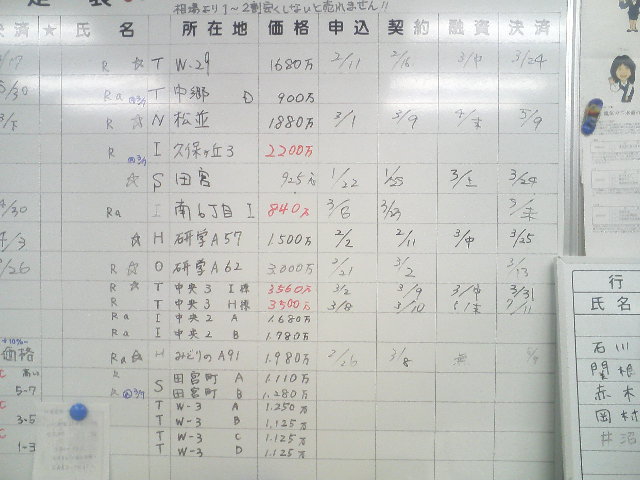 相場より1~2割安くしないと売れません!!
決済 ★ 氏名 所在地 価格 申込 契約 融資 決済
R ☆ T W-29 1680万 2/11 2/16 3/中 3/24
Ra T 中郷 D 900万
R ☆ N 松並 1880万 3/1 3/9 4/末 5/9
R I 久保ヶ丘3 2200万
☆ S 田宮 925万 1/22 1/25 3/上 3/24
4/30 Ra I 南6丁目 I 840万 3/6 3/23 3/末
4/3 ☆ H 研学A57 1500万 2/2 2/11 3/中 3/25
R ☆ O 研学A62 3,000万 2/21 3/2 3/13
R ☆ T 中央3 I棟 3560万 3/2 3/9 3/中 3/31
R T 中央3 H棟 3500万 3/8 3/10
Ra I 中央2 A 1.680万
Ra I 中央2 B 1.780万
価格 Ra ☆ H みどりのA91 1.980万 2/26 3/8
高い
R S 田宮町 A 1.110万
5-7 R 田宮町 B 1.280万
T W-3 A 1.250万
3-5 T W-3 B 1.125万
T W-3 C 1.125万
1-3 T W-3 D 1.125万
行
氏名
石川
関根
赤木
岡村
井沼